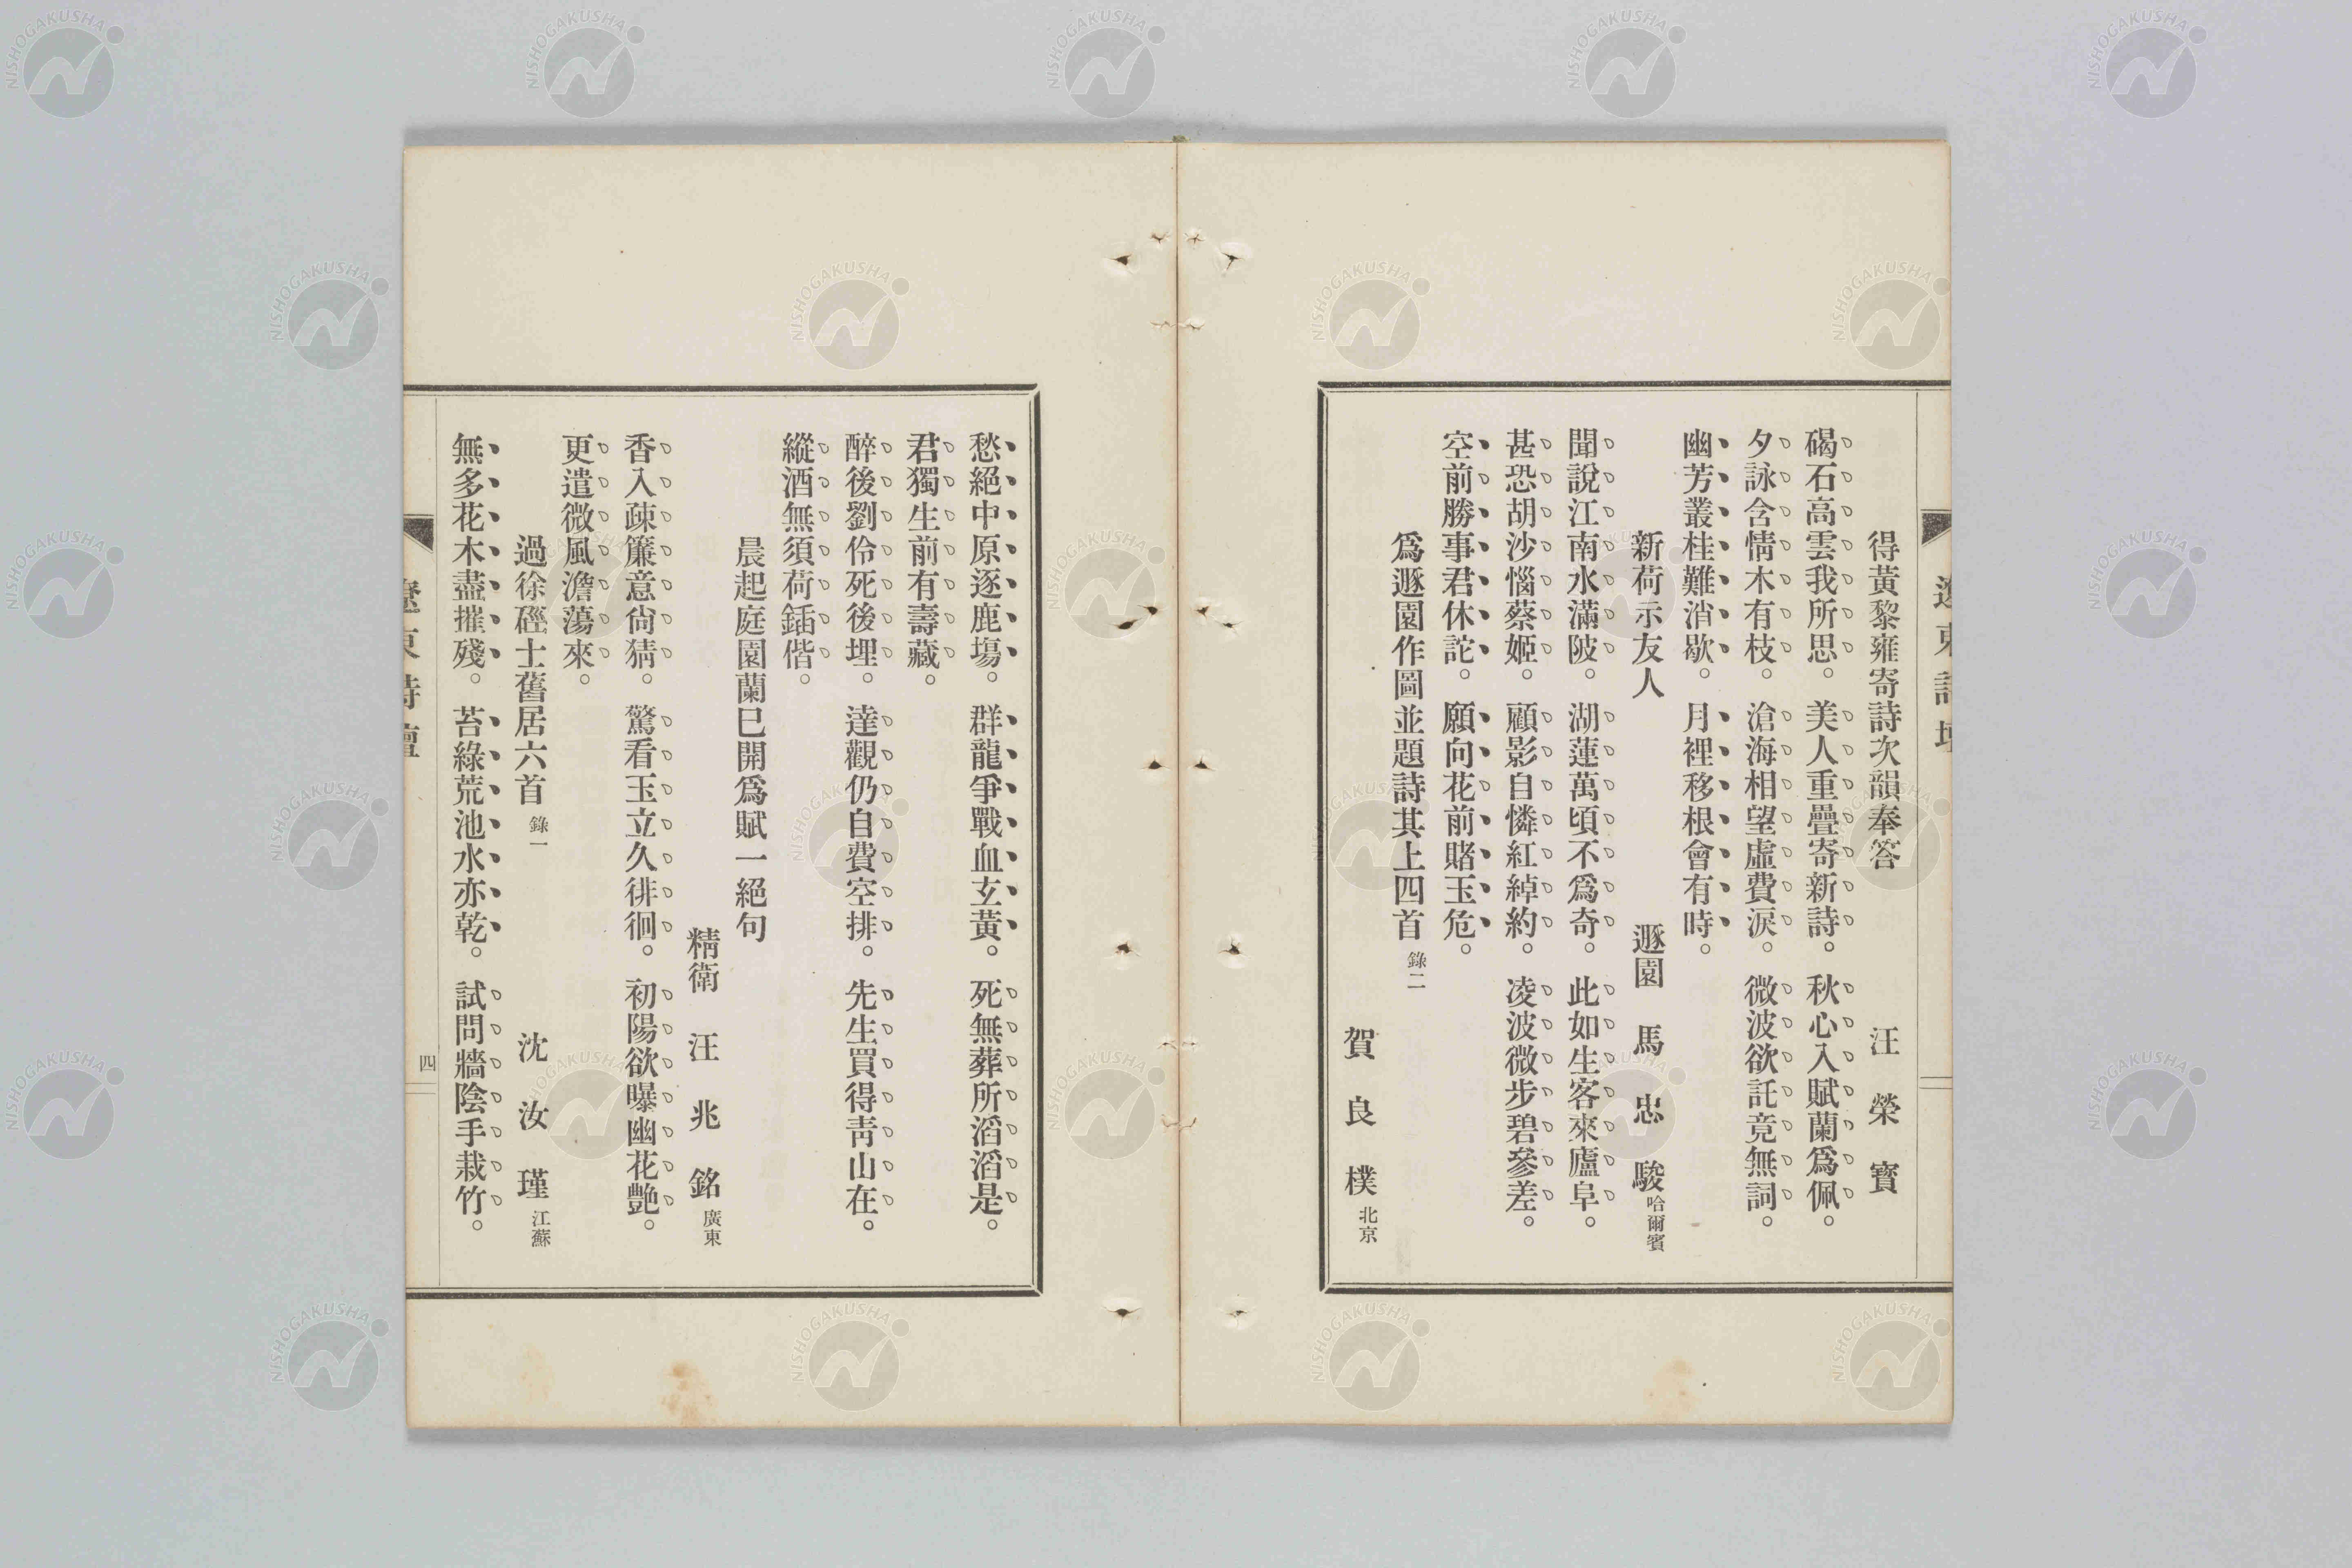 得黃黎雍寄詩次韻奉答 汪榮寳
碣石高雲我所思。美人重疊寄新詩。秋心入賦蘭爲佩。
夕詠含情木有枝。滄海相望虛費淚。微波欲託竟無詞。
幽芳叢桂難消歇。月裡移根會有時。
新荷示友人 遯園 馬忠駿 哈爾賓
聞說江南水滿陂。湖蓮萬頃不爲奇。此如生客來廬阜。
甚恐胡沙惱蔡姬。顧影自憐紅綽約。凌波微步碧參差。
空前勝事君休詫。願向花前賭玉危。
爲遯園作圖並題詩其上四首 錄二
賀良樸 北京
愁絕中原逐鹿場。群龍爭戰血玄黃。死無葬所滔滔是。
君獨生前有壽藏。
醉後劉伶死後埋。達觀仍自費空排。先生買得靑山在。
縱酒無須荷鍤偕。
晨起庭園蘭已開爲賦一絕句
精衛 汪兆銘 廣東
香入疎簾意尙猜。驚看玉立久徘徊。初陽欲曝幽花艷。
更遣微風澹蕩來。
過徐磑士舊居六首 錄一 沈汝瑾 江蘇
無多花木盡摧殘。苔綠荒池水亦乾。試問牆陰手栽竹。
遼東詩壇
四
NISHOGAKUSHA